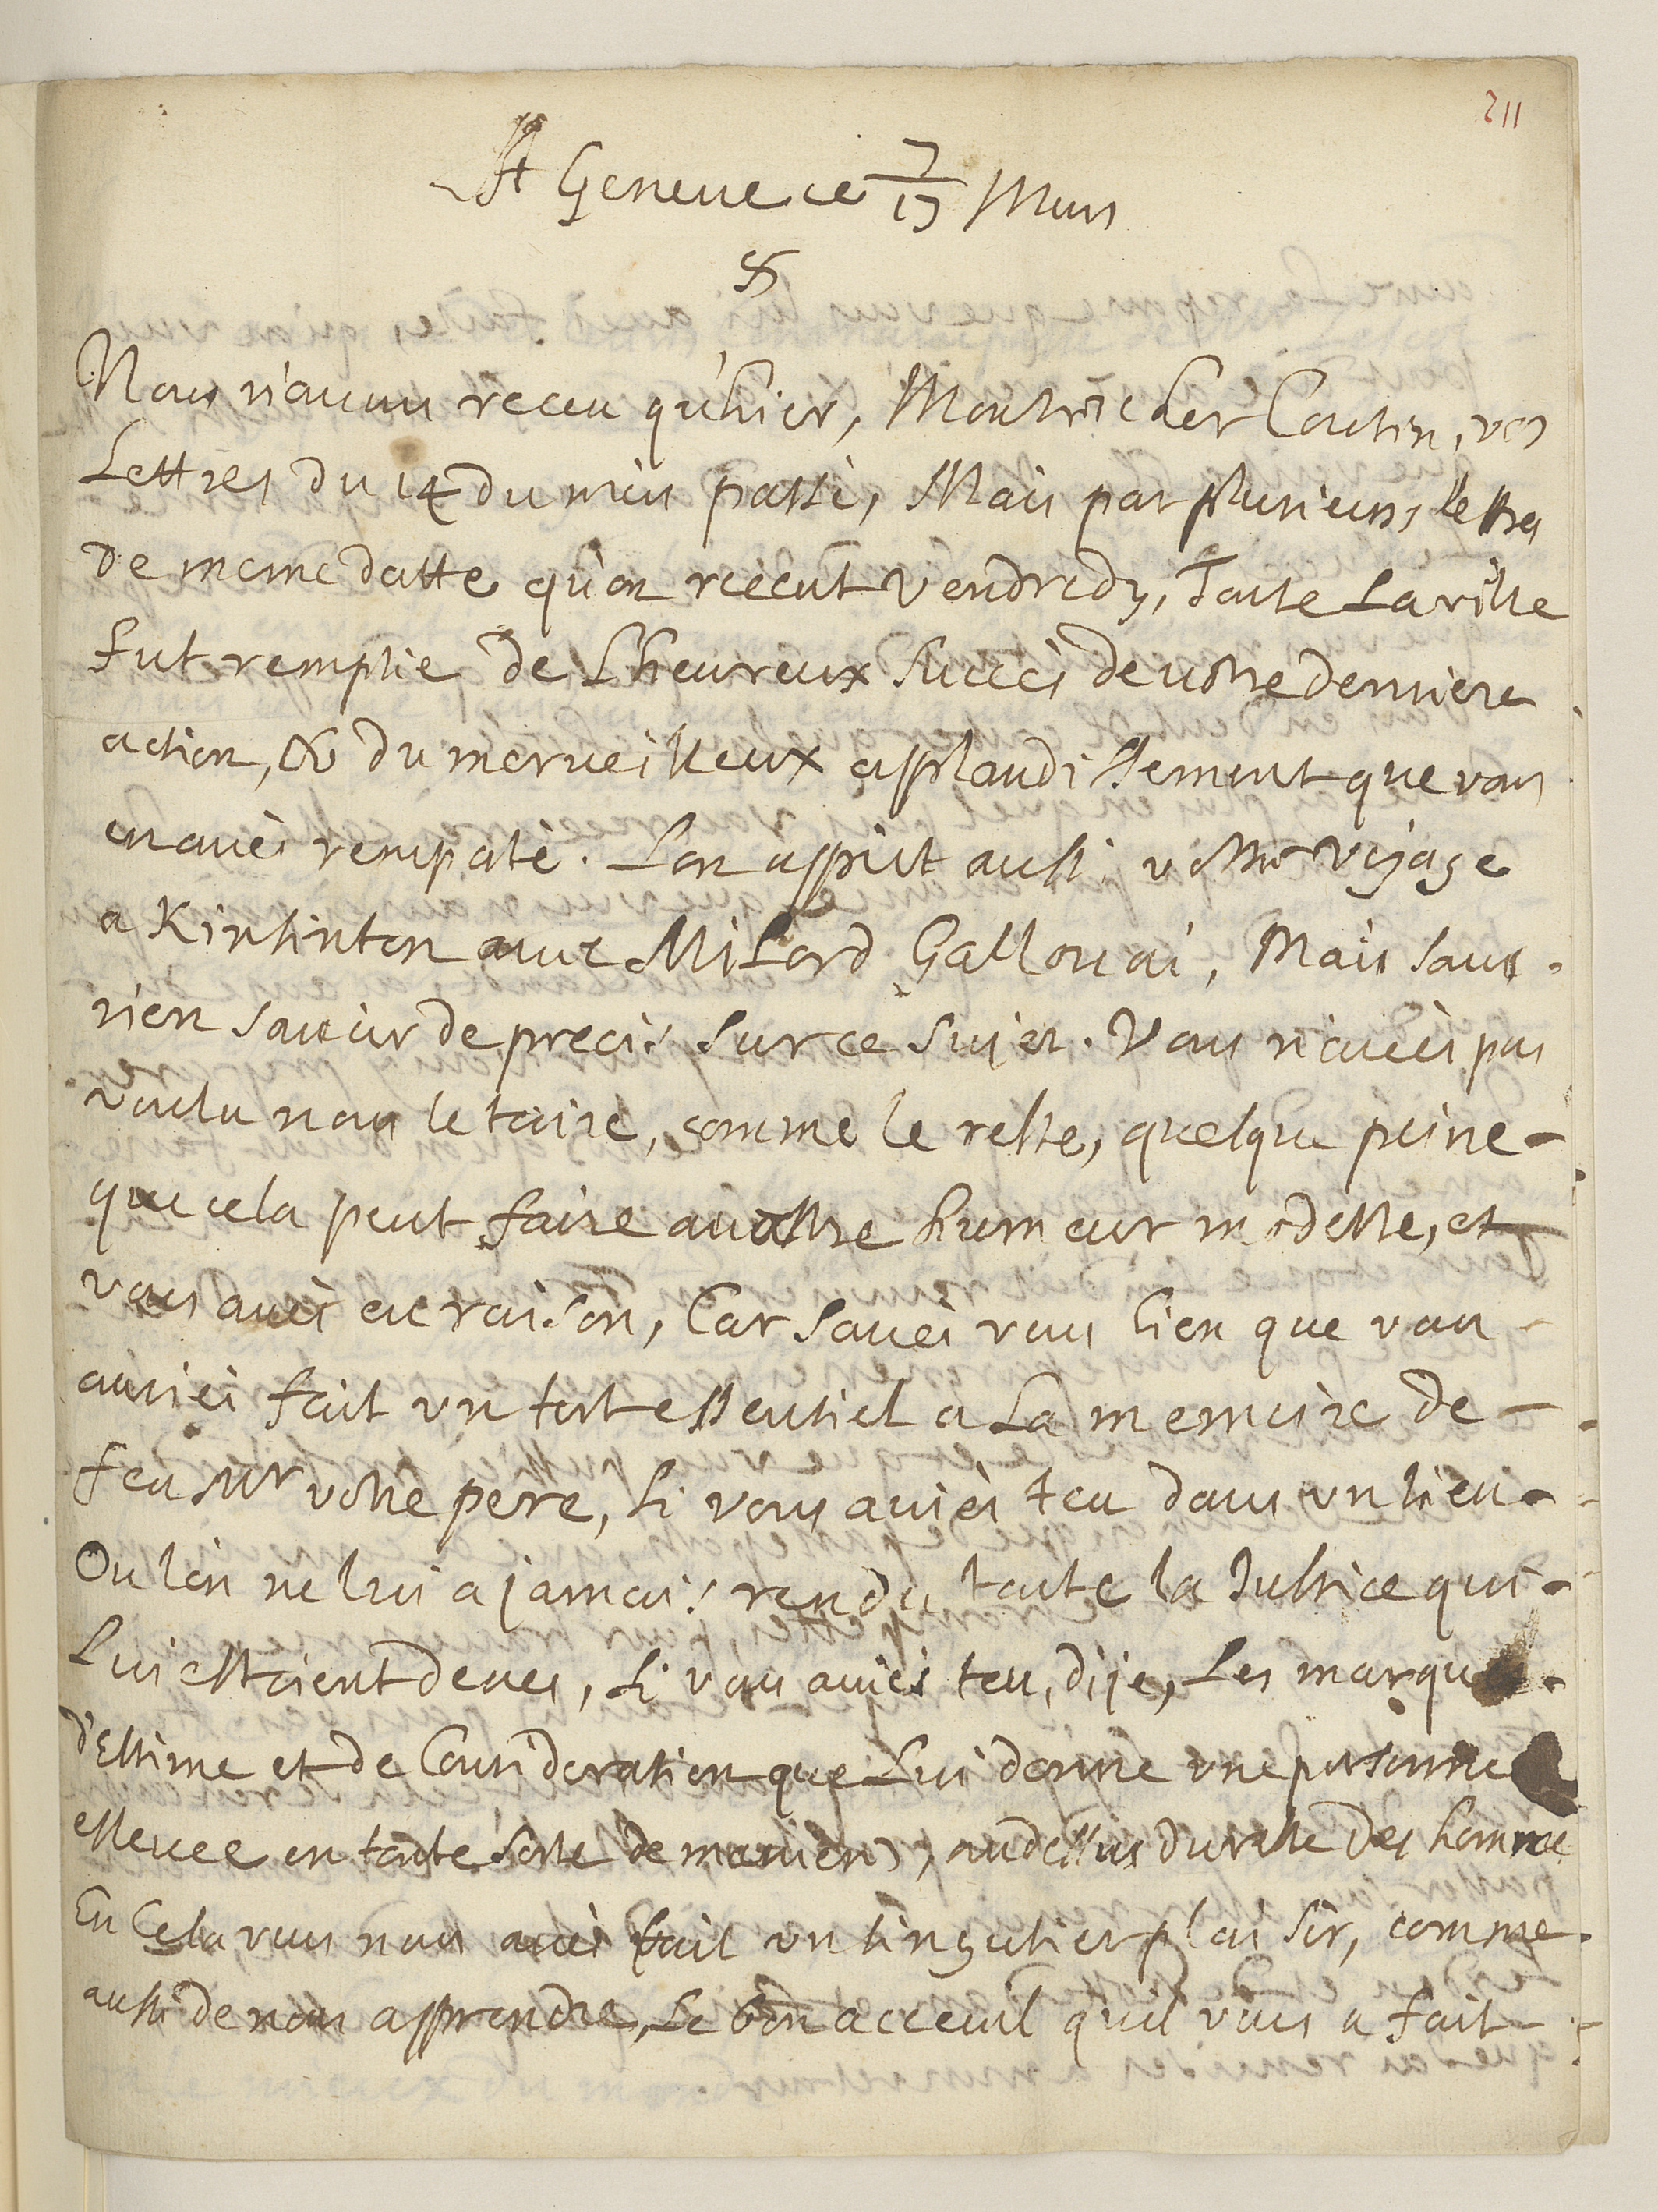 211
A Geneue ce 7/17 Mars
Nous n'auons receu qu'hier, Mon trs cher Cousin, vos
Lettres du 14 du mois passé, Mais par plusieurs lettres
de meme datte qu'on receut Vendredy, Toute La ville
fut remplie de L'heureux Succès de vostre derniere
action, & du merueilleux applaudissement que vous
en aués remporté. L'on apprit aussi vostre voyage
a Kinsinton auec Milord Gallouai, Mais sans
rien sauoir de precis sur ce sujet. Vous n'aués pas
voulu nous le taire, comme le reste, quelque peine
que cela peut faire a vostre humeur modeste, et
vous aués eu raison, Car saués vous bien que vous
auriés fait vn tort essentiel a La memoire de
feu Mr vostre pere, si vous auiés teu dans vn lieu
Ou l'on ne lui a jamais rendu toute la Justice qui
Lui estoient deues, si vous auiés teu, dije, Les marques
d'Estime et de Consideration que Lui donne vne personne
esleuee en toute sorte de manieres, au dessus du reste des hommes
En Cela vous nous aués fait vn singulier plaisir, comme
aussi de nous apprendre, Le bon acceuil quil vous a fait